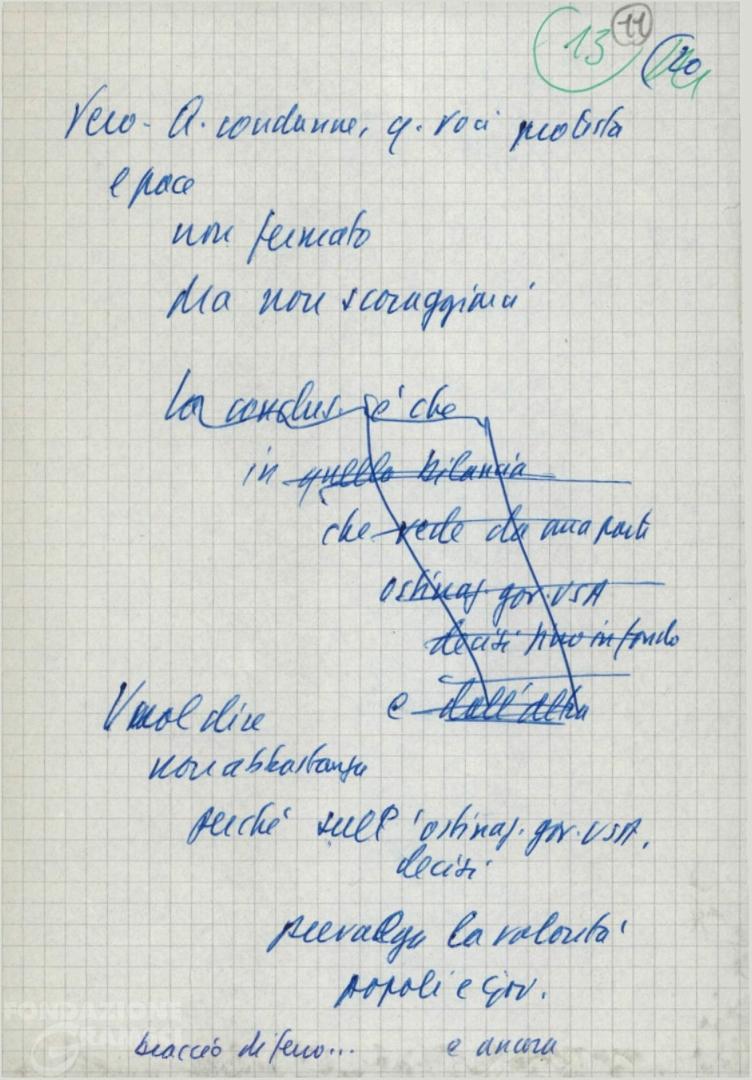 13 11 20
Vero - Q. condanne, q. voci protesta
e pace
non fermato
Ma non scoraggiarci
La conclus. è che
in quella bilancia
che vede da una parte
ostinaz. gov. USA
decisi fino in fondo
e dall'altra
Vuol dire
non abbastanza
perché sull'ostinaz. gov. USA,
decisi
prevalga la volontà
popoli e Gov.
braccio di ferro... e ancora
FONDAZIONE
GRAMSCI